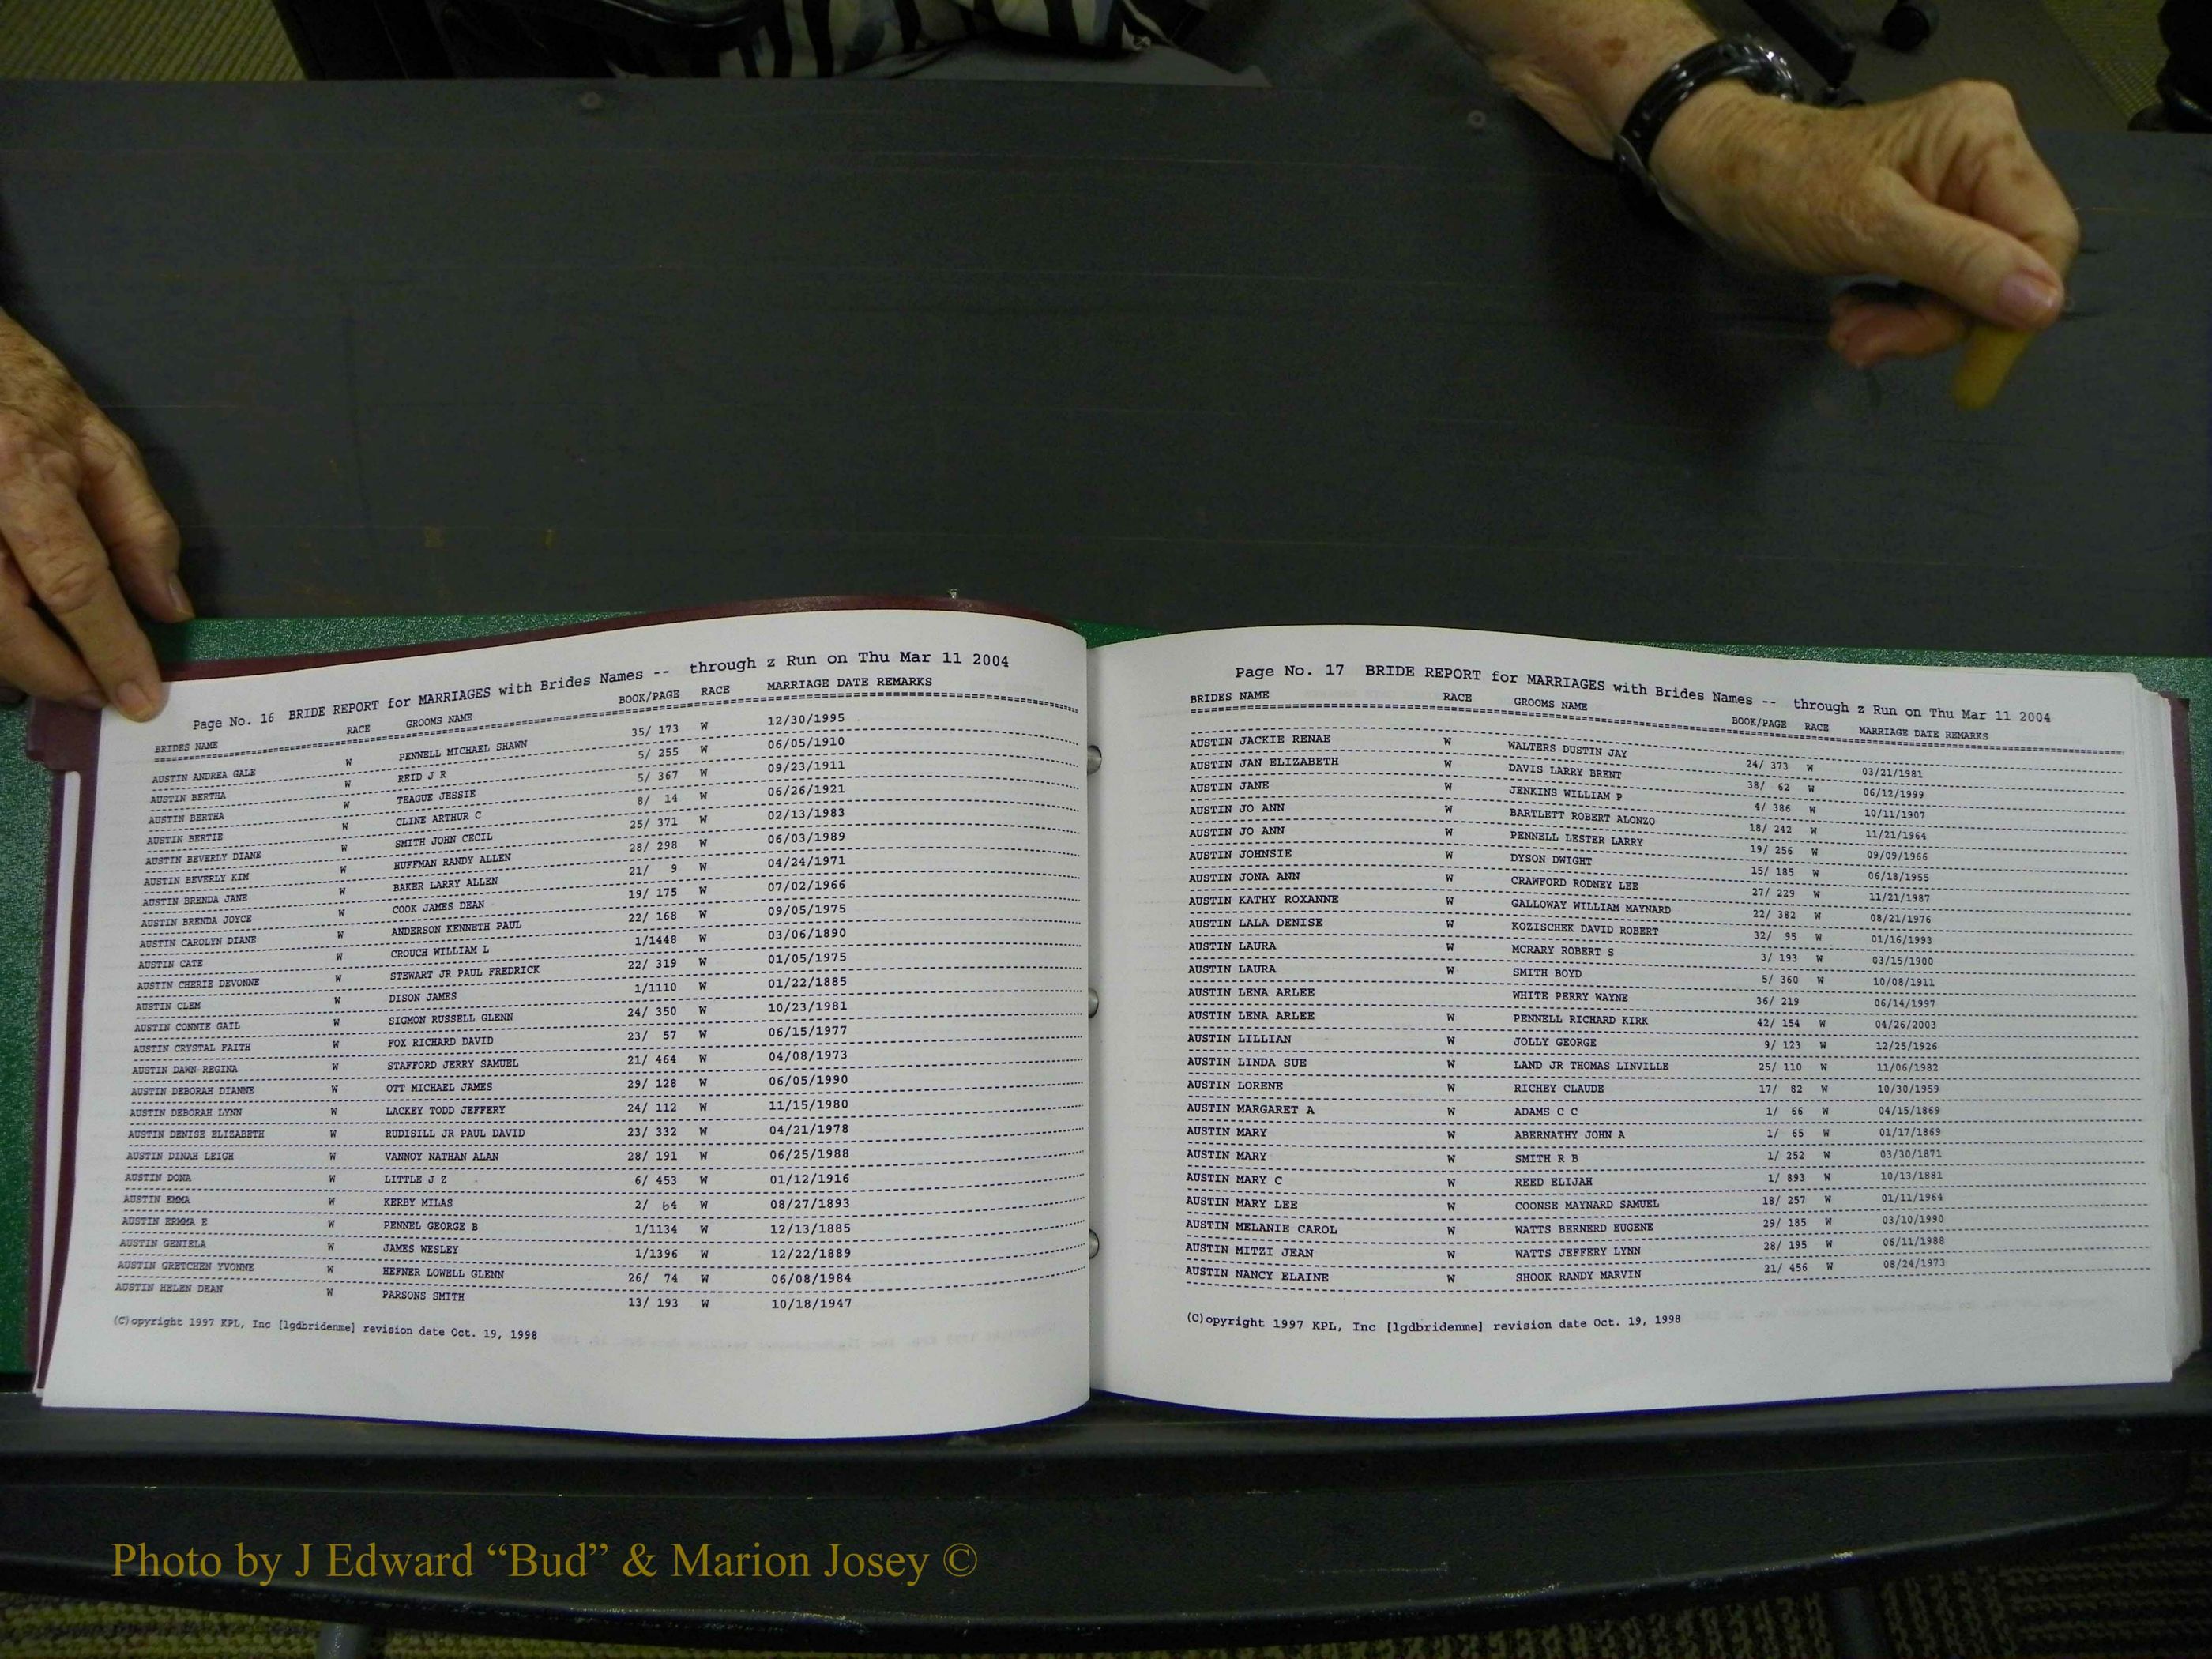 Page No. 16 BRIDE REPORT for MARRIAGES with Brides Names -- through z Run on Thu Mar 11 2004
BRIDES NAME RACE GROOMS NAME BOOK/PAGE RACE MARRIAGE DATE REMARKS
AUSTIN ANDREA GALE W PENNELL MICHAEL SHAWN 35/ 173 W 12/30/1995
AUSTIN BERTHA W REID J R 5/ 255 W 06/05/1910
AUSTIN BERTHA W TEAGUE JESSIE 5/ 367 W 09/23/1911
AUSTIN BERTIE W CLINE ARTHUR C 8/ 14 W 06/26/1921
AUSTIN BEVERLY DIANE W SMITH JOHN CECIL 25/ 371 W 02/13/1983
AUSTIN BEVERLY KIM W HUFFMAN RANDY ALLEN 28/ 298 W 06/03/1989
AUSTIN BRENDA JANE W BAKER LARRY ALLEN 21/ 9 W 04/24/1971
AUSTIN BRENDA JOYCE W COOK JAMES DEAN 19/ 175 W 07/02/1966
AUSTIN CAROLYN DIANE W ANDERSON KENNETH PAUL 22/ 168 W 09/05/1975
AUSTIN CATE W CROUCH WILLIAM L 1/1448 W 03/06/1890
AUSTIN CHERIE DEVONNE W STEWART JR PAUL FREDRICK 22/ 319 W 01/05/1975
AUSTIN CLEM W DISON JAMES 1/1110 W 01/22/1885
AUSTIN CONNIE GAIL W SIGMON RUSSELL GLENN 24/ 350 W 10/23/1981
AUSTIN CRYSTAL FAITH W FOX RICHARD DAVID 23/ 57 W 06/15/1977
AUSTIN DAWN REGINA W STAFFORD JERRY SAMUEL 21/ 464 W 04/08/1973
AUSTIN DEBORAH DIANNE W OTT MICHAEL JAMES 29/ 128 W 06/05/1990
AUSTIN DEBORAH LYNN W LACKEY TODD JEFFERY 24/ 112 W 11/15/1980
AUSTIN DENISE ELIZABETH W RUDISILL JR PAUL DAVID 23/ 332 W 04/21/1978
AUSTIN DINAH LEIGH W VANNOY NATHAN ALAN 28/ 191 W 06/25/1988
AUSTIN DONA W LITTLE J Z 6/ 453 W 01/12/1916
AUSTIN EMMA W KERBY MILAS 2/ 64 W 08/27/1893
AUSTIN ERMMA E W PENNEL GEORGE B 1/1134 W 12/13/1885
AUSTIN GENIELA W JAMES WESLEY 1/1396 W 12/22/1889
AUSTIN GRETCHEN YVONNE W HEFNER LOWELL GLENN 26/ 74 W 06/08/1984
AUSTIN HELEN DEAN W PARSONS SMITH 13/ 193 W 10/18/1947
(C)opyright 1997 KPL, Inc [lgdbridenme] revision date Oct. 19, 1998
Page No. 17 BRIDE REPORT for MARRIAGES with Brides Names -- through z Run on Thu Mar 11 2004
BRIDES NAME RACE GROOMS NAME BOOK/PAGE RACE MARRIAGE DATE REMARKS
AUSTIN JACKIE RENAE W WALTERS DUSTIN JAY 24/ 373 W 03/21/1981
AUSTIN JAN ELIZABETH W DAVIS LARRY BRENT 38/ 62 W 06/12/1999
AUSTIN JANE W JENKINS WILLIAM P 4/ 386 W 10/11/1907
AUSTIN JO ANN W BARTLETT ROBERT ALONZO 18/ 242 W 11/21/1964
AUSTIN JO ANN W PENNELL LESTER LARRY 19/ 256 W 09/09/1966
AUSTIN JOHNSIE W DYSON DWIGHT 15/ 185 W 06/18/1955
AUSTIN JONA ANN W CRAWFORD RODNEY LEE 27/ 229 W 11/21/1987
AUSTIN KATHY ROXANNE W GALLOWAY WILLIAM MAYNARD 22/ 382 W 08/21/1976
AUSTIN LALA DENISE W KOZISCHEK DAVID ROBERT 32/ 95 W 01/16/1993
AUSTIN LAURA W MCRARY ROBERT S 3/ 193 W 03/15/1900
AUSTIN LAURA W SMITH BOYD 5/ 360 W 10/08/1911
AUSTIN LENA ARLEE WHITE PERRY WAYNE 36/ 219 06/14/1997
AUSTIN LENA ARLEE W PENNELL RICHARD KIRK 42/ 154 W 04/26/2003
AUSTIN LILLIAN W JOLLY GEORGE 9/ 123 W 12/25/1926
AUSTIN LINDA SUE W LAND JR THOMAS LINVILLE 25/ 110 W 11/06/1982
AUSTIN LORENE W RICHEY CLAUDE 17/ 82 W 10/30/1959
AUSTIN MARGARET A W ADAMS C C 1/ 66 W 04/15/1869
AUSTIN MARY W ABERNATHY JOHN A 1/ 65 W 01/17/1869
AUSTIN MARY W SMITH R B 1/ 252 W 03/30/1871
AUSTIN MARY C W REED ELIJAH 1/ 893 W 10/13/1881
AUSTIN MARY LEE W COONSE MAYNARD SAMUEL 18/ 257 W 01/11/1964
AUSTIN MELANIE CAROL W WATTS BERNERD EUGENE 29/ 185 W 03/10/1990
AUSTIN MITZI JEAN W WATTS JEFFERY LYNN 28/ 195 W 06/11/1988
AUSTIN NANCY ELAINE W SHOOK RANDY MARVIN 21/ 456 W 08/24/1973
(C)opyright 1997 KPL, Inc [lgdbridenme] revision date Oct. 19, 1998
Photo by J Edward “Bud” & Marion Josey ©